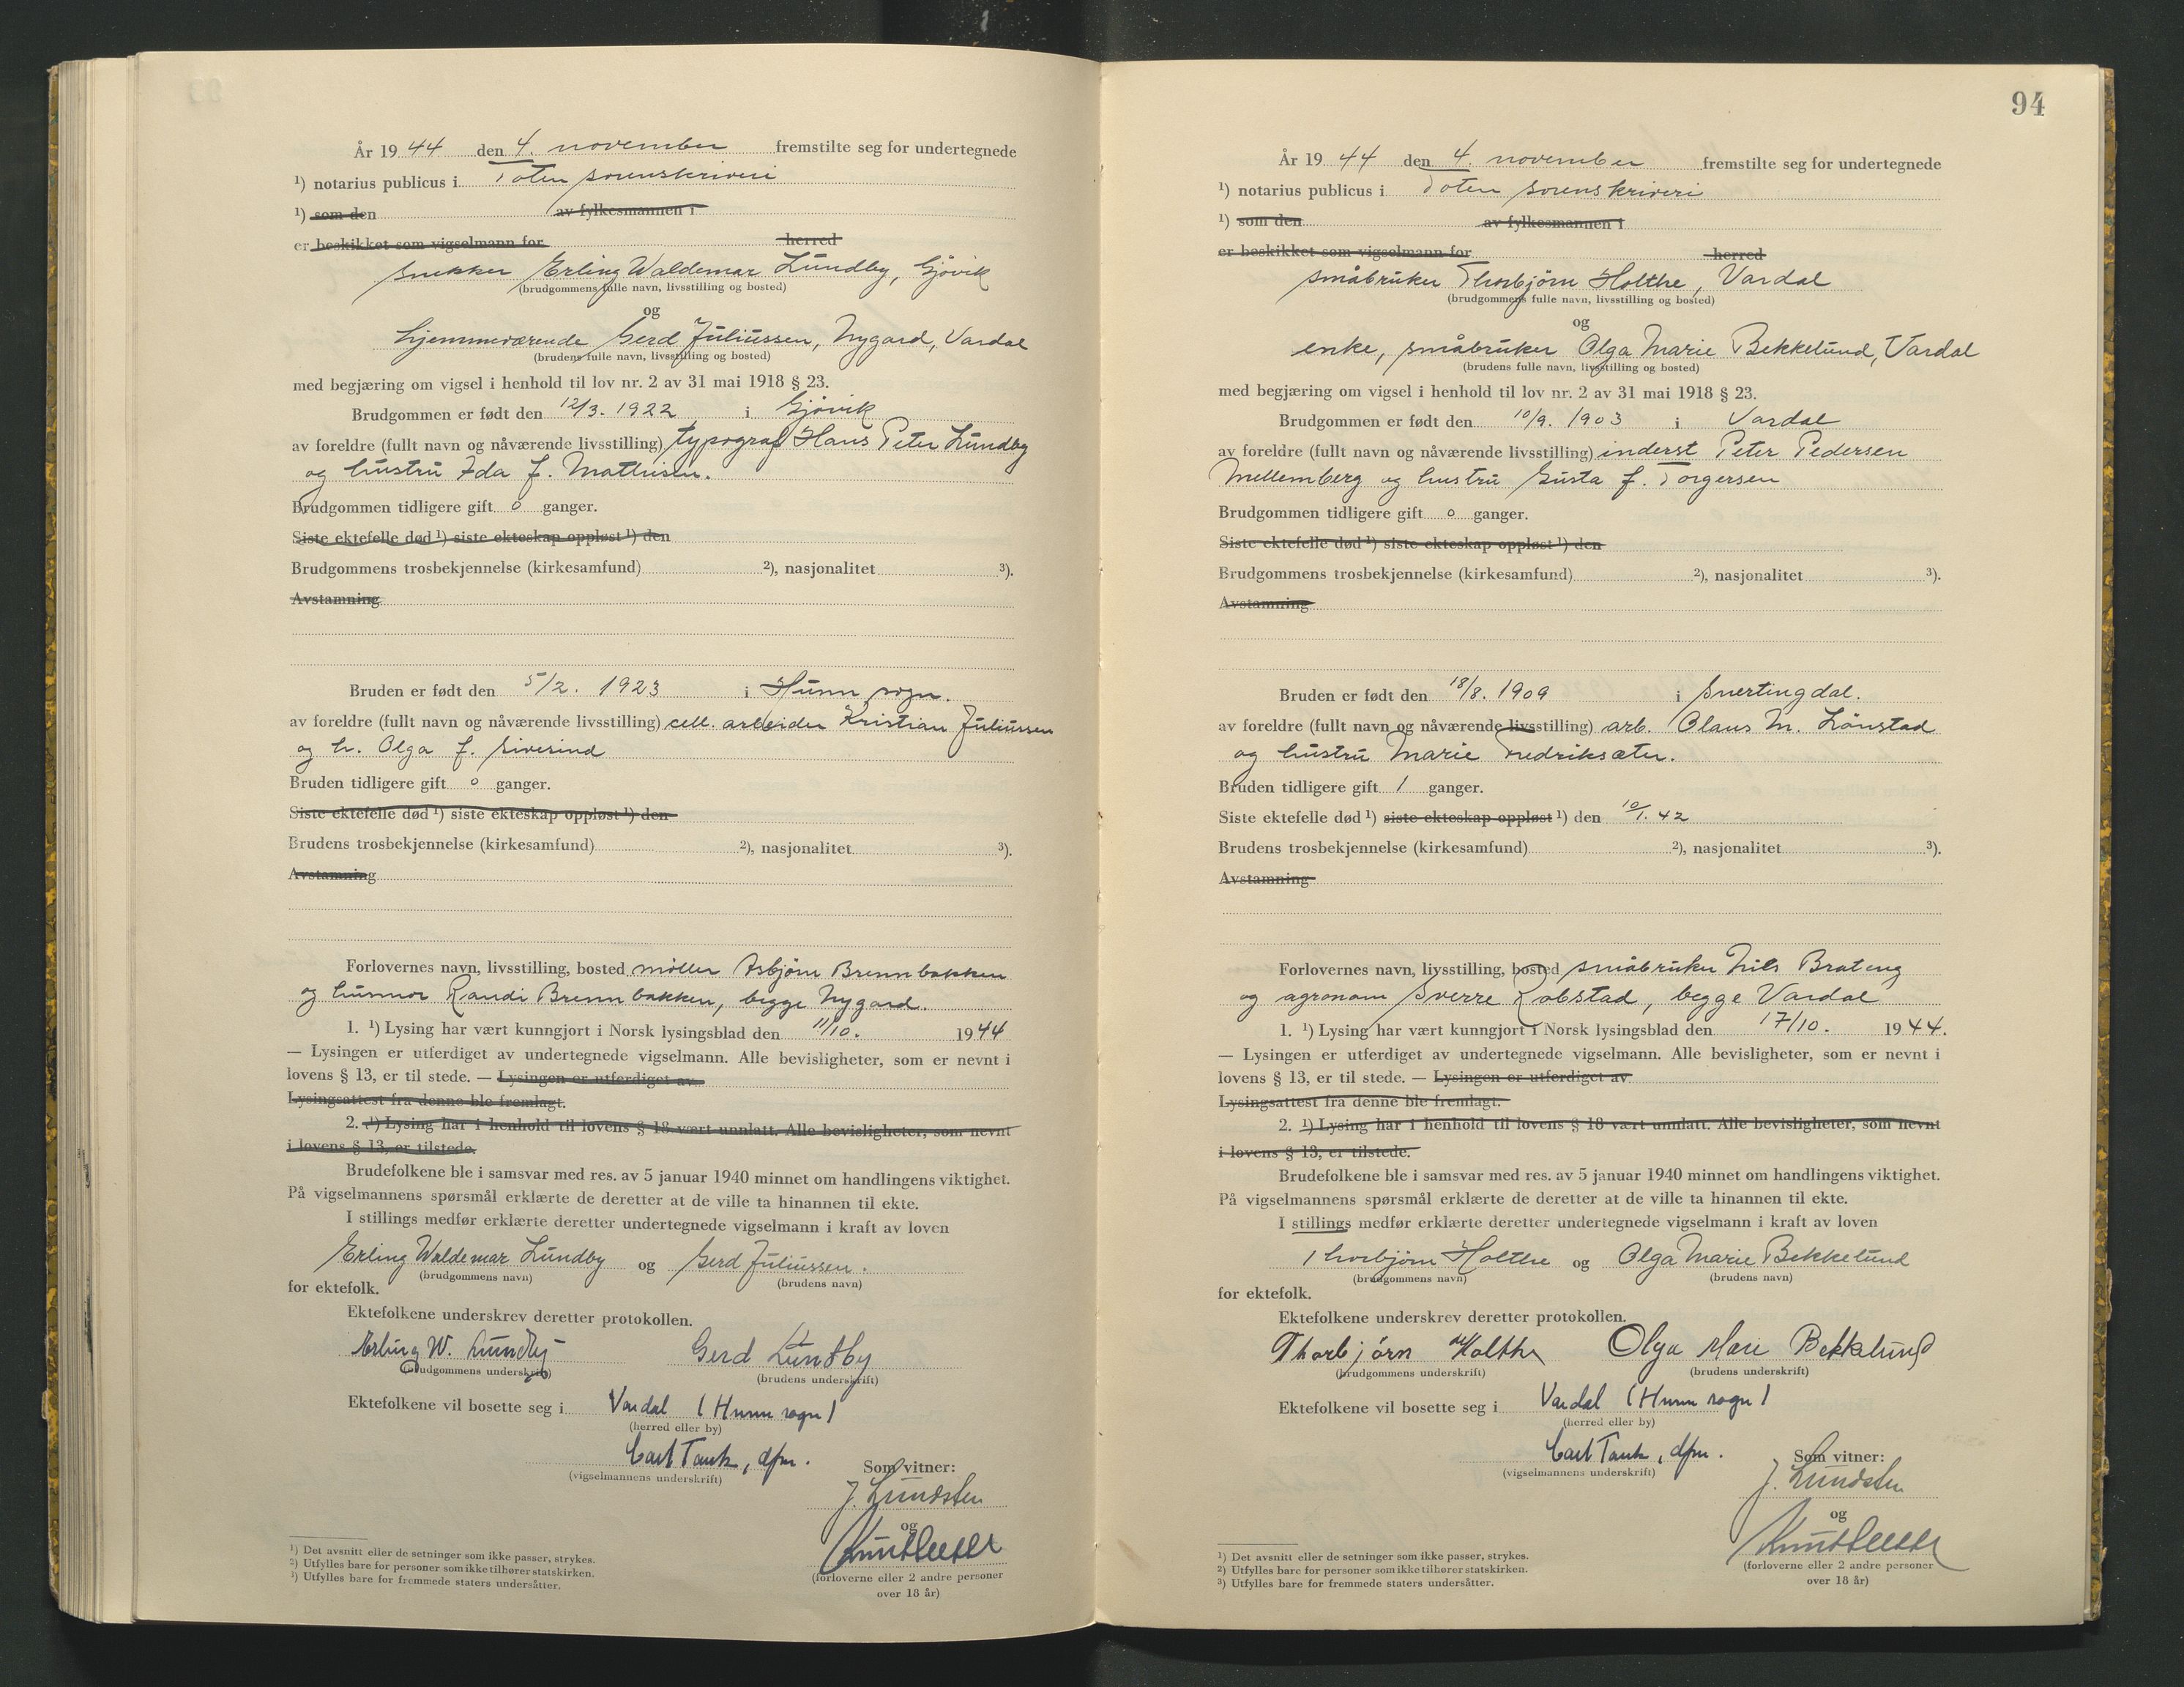 År 19 44 den 4. november fremstilte seg for undertegnede
¹) notarius publicus i Toten sorenskriveri
¹) som den av fylkesmannen i
er beskikket som vigselmann for herred
snekker Erling Waldemar Lundby, Gjøvik
(brudgommens fulle navn, livsstilling og bosted)
og
hjemmeværende Gerd Juliussen, Nygard, Vardal
(brudens fulle navn, livsstilling og bosted)
med begjæring om vigsel i henhold til lov nr. 2 av 31 mai 1918 § 23.
Brudgommen er født den 12/3. 1922 i Gjøvik
av foreldre (fullt navn og nåværende livsstilling) typograf Hans Peter Lundby
og hustru Ida f. Mathisen.
Brudgommen tidligere gift 0 ganger.
Siste ektefelle død ¹) siste ekteskap oppløst ¹) den
Brudgommens trosbekjennelse (kirkesamfund) ²), nasjonalitet ³).
Avstamning
Bruden er født den 5/2. 1923 i Hunn sogn.
av foreldre (fullt navn og nåværende livsstilling) cell. arbeider Kristian Juliussen
og h. Olga f. Sivesind
Bruden tidligere gift 0 ganger.
Siste ektefelle død ¹) siste ekteskap oppløst ¹) den
Brudens trosbekjennelse (kirkesamfund) ²), nasjonalitet ³).
Avstamning
Forlovernes navn, livsstilling, bosted møller Asbjørn Brennbakken
og husmor Randi Brennbakken, begge Nygard.
1. ¹) Lysing har vært kunngjort i Norsk lysingsblad den 11/10. 1944
— Lysingen er utferdiget av undertegnede vigselmann. Alle bevisligheter, som er nevnt i
lovens § 13, er til stede. — Lysingen er utferdiget av
Lysingsattest fra denne ble fremlagt.
2. ¹) Lysing har i henhold til lovens § 18 vært unnlatt. Alle bevisligheter, som nevnt
i lovens § 13, er tilstede.
Brudefolkene ble i samsvar med res. av 5 januar 1940 minnet om handlingens viktighet.
På vigselmannens spørsmål erklærte de deretter at de ville ta hinannen til ekte.
I stillings medfør erklærte deretter undertegnede vigselmann i kraft av loven
Erling Waldemar Lundby og Gerd Juliussen.
(brudgommens navn) (brudens navn)
for ektefolk.
Ektefolkene underskrev deretter protokollen.
Erling W. Lundby Gerd Lundby
(brudgommens underskrift) (brudens underskrift)
Ektefolkene vil bosette seg i Vardal (Hunn sogn)
(herred eller by)
Carl Tank, dfm.
(vigselmannens underskrift)
Som vitner:
J. Lundsten
og
(forloverne eller 2 andre personer
over 18 år)
¹) Det avsnitt eller de setninger som ikke passer, strykes.
²) Utfylles bare for personer som ikke tilhører statskirken.
³) Utfylles bare for fremmede staters undersåtter.
94
År 19 44 den 4. november fremstilte seg for undertegnede
¹) notarius publicus i Toten sorenskriveri
¹) som den av fylkesmannen i
er beskikket som vigselmann for herred
småbruker Thorbjørn Holthe, Vardal
(brudgommens fulle navn, livsstilling og bosted)
og
enke, småbruker Olga Marie Bekkelund, Vardal
(brudens fulle navn, livsstilling og bosted)
med begjæring om vigsel i henhold til lov nr. 2 av 31 mai 1918 § 23.
Brudgommen er født den 10/9. 1903 i Vardal
av foreldre (fullt navn og nåværende livsstilling) inderst Peter Pedersen
Mellemberg og hustru Gusta f. Torgersen
Brudgommen tidligere gift 0 ganger.
Siste ektefelle død ¹) siste ekteskap oppløst ¹) den
Brudgommens trosbekjennelse (kirkesamfund) ²), nasjonalitet ³).
Avstamning
Bruden er født den 18/8. 1909 i Snertingdal.
av foreldre (fullt navn og nåværende livsstilling) arb. Olaus M. Lønstad
og hustru Marie Fredriksæter.
Bruden tidligere gift 1 ganger.
Siste ektefelle død ¹) siste ekteskap oppløst ¹) den 10/1. 42
Brudens trosbekjennelse (kirkesamfund) ²), nasjonalitet ³).
Avstamning
Forlovernes navn, livsstilling, bosted småbruker Nils Brateng
og agronom Sverre Robstad, begge Vardal
1. ¹) Lysing har vært kunngjort i Norsk lysingsblad den 17/10. 1944.
— Lysingen er utferdiget av undertegnede vigselmann. Alle bevisligheter, som er nevnt i
lovens § 13, er til stede. — Lysingen er utferdiget av
Lysingsattest fra denne ble fremlagt.
2. ¹) Lysing har i henhold til lovens § 18 vært unnlatt. Alle bevisligheter, som nevnt
i lovens § 13, er tilstede.
Brudefolkene ble i samsvar med res. av 5 januar 1940 minnet om handlingens viktighet.
På vigselmannens spørsmål erklærte de deretter at de ville ta hinannen til ekte.
I stillings medfør erklærte deretter undertegnede vigselmann i kraft av loven
Thorbjørn Holthe og Olga Marie Bekkelund
(brudgommens navn) (brudens navn)
for ektefolk.
Ektefolkene underskrev deretter protokollen.
Thorbjørn Holthe Olga Marie Bekkelund
(brudgommens underskrift) (brudens underskrift)
Ektefolkene vil bosette seg i Vardal (Hunn sogn)
(herred eller by)
Carl Tank, dfm.
(vigselmannens underskrift)
Som vitner:
J. Lundsten
og
(forloverne eller 2 andre personer
over 18 år)
¹) Det avsnitt eller de setninger som ikke passer, strykes.
²) Utfylles bare for personer som ikke tilhører statskirken.
³) Utfylles bare for fremmede staters undersåtter.